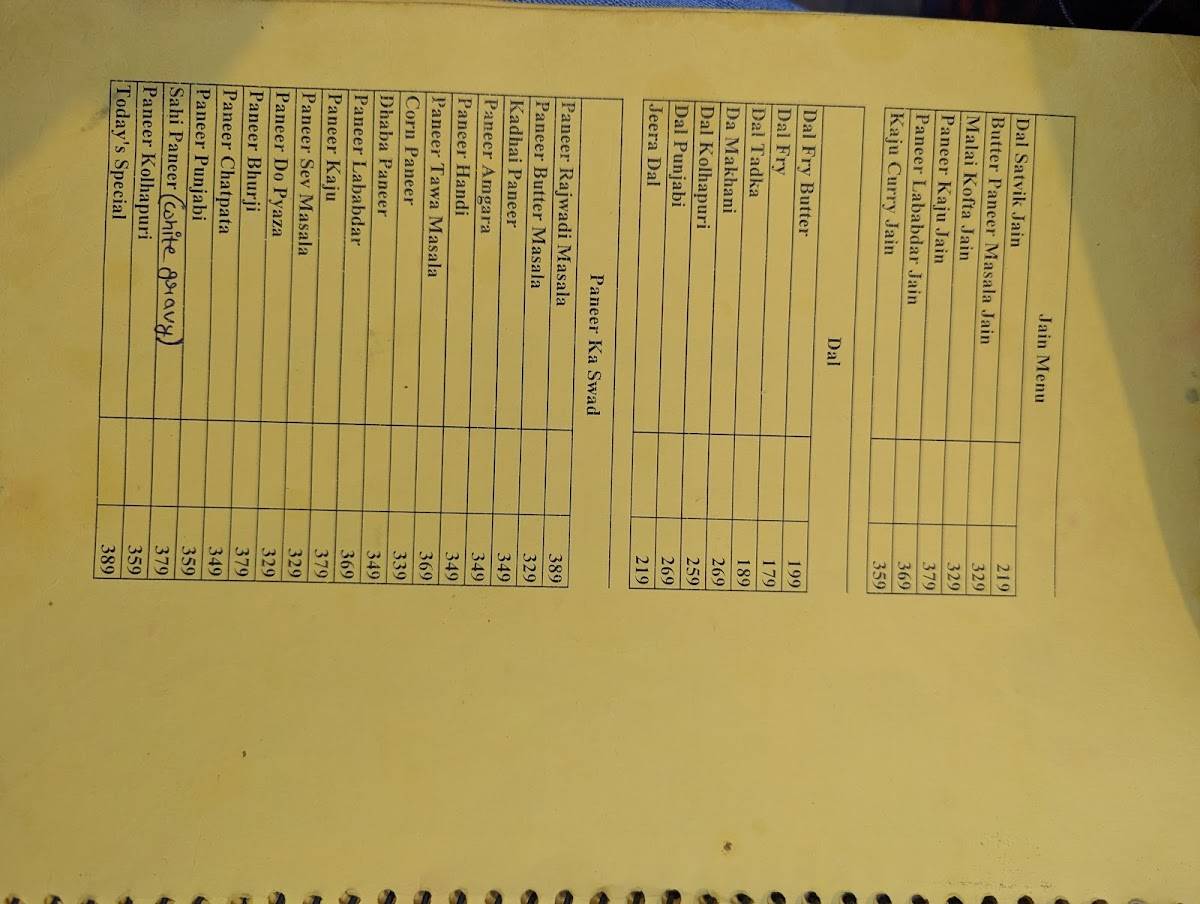 Jain Menu
Dal Satvik Jain 219
Butter Paneer Masala Jain 329
Malai Kofta Jain 329
Paneer Kaju Jain 379
Paneer Lababdar Jain 369
Kaju Curry Jain 359
Dal
Dal Fry Butter 199
Dal Fry 179
Dal Tadka 189
Da Makhani 269
Dal Kolhapuri 259
Dal Punjabi 269
Jeera Dal 219
Paneer Ka Swad
Paneer Rajwadi Masala 389
Paneer Butter Masala 329
Kadhai Paneer 349
Paneer Amgara 349
Paneer Handi 349
Paneer Tawa Masala 369
Corn Paneer 339
Dhaba Paneer 349
Paneer Lababdar 369
Paneer Kaju 379
Paneer Sev Masala 329
Paneer Do Pyaza 329
Paneer Bhurji 379
Paneer Chatpata 349
Paneer Punjabi 359
Sahi Paneer (white gravy) 379
Paneer Kolhapuri 359
Today's Special 389